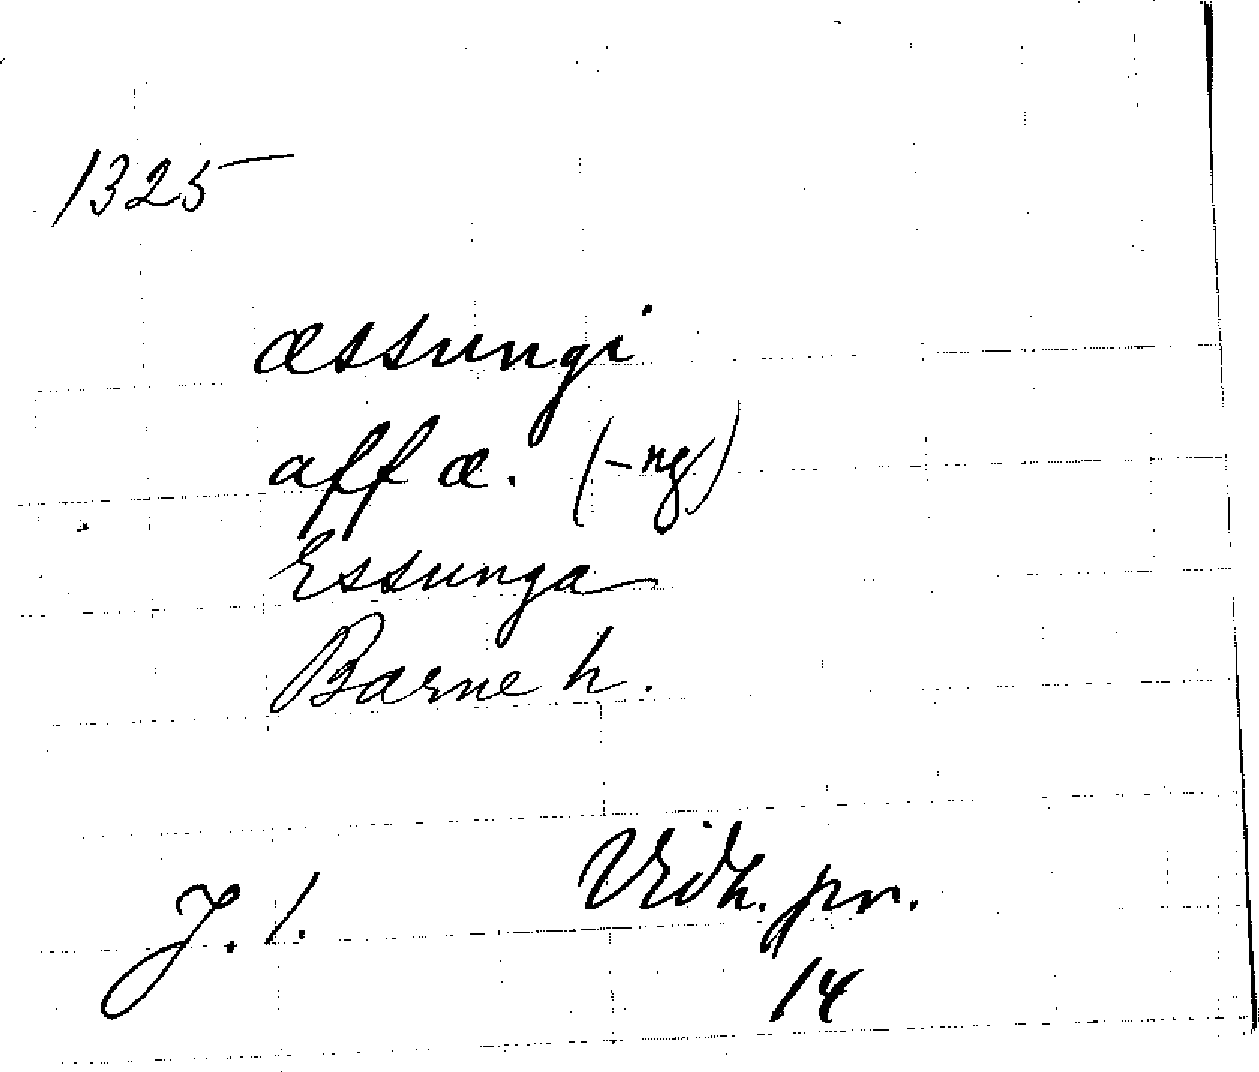 1325
æssungi
aff æ. (-ng)
Essunga
Barne h.
J. 1. Vidh. pr.
14